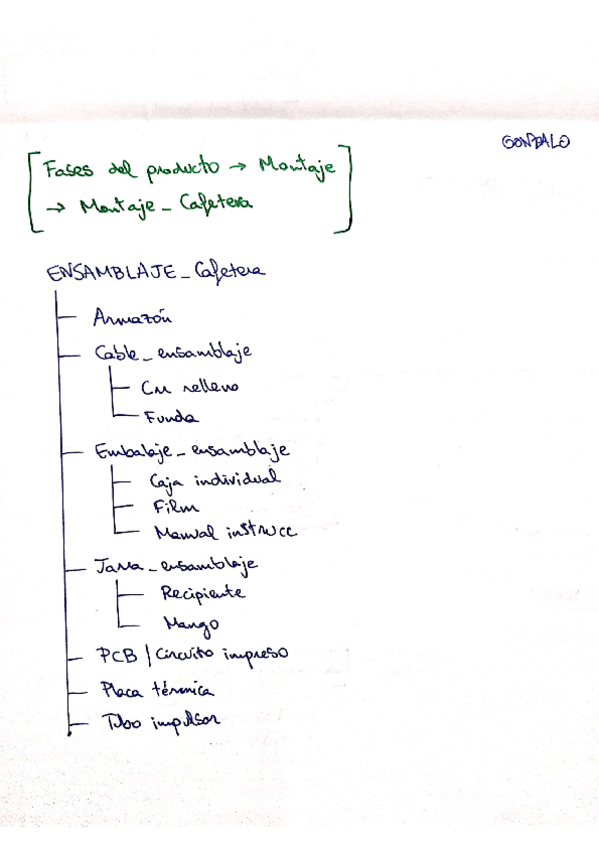 GONZALO
Fases del producto → Montaje
→ Montaje_Cafetera
ENSAMBLAJE_Cafetera
Armazón
Cable_ensamblaje
Cu relleno
Funda
Embalaje_ensamblaje
Caja individual
Film
Manual instrucc
Jarra_ensamblaje
Recipiente
Mango
PCB | Circuito impreso
Placa térmica
Tubo impulsor